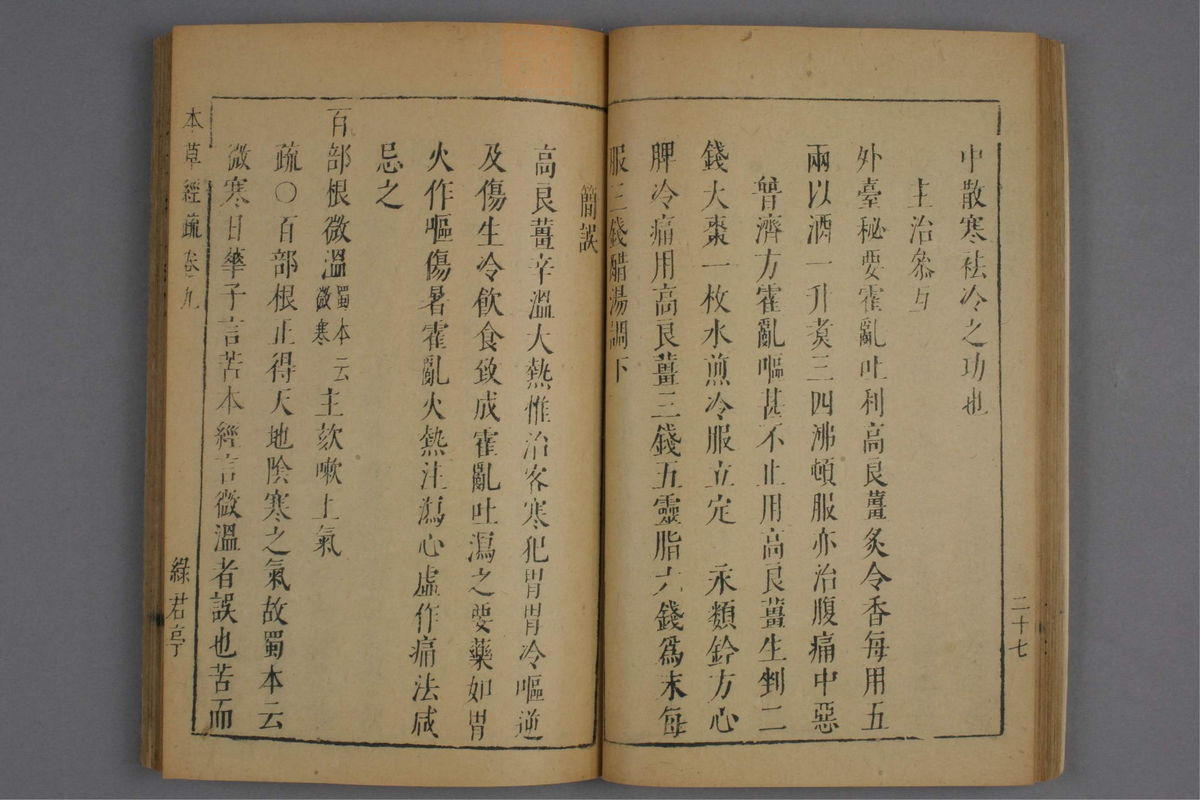 中散寒袪冷之功也
主治叅互
外臺秘要霍亂吐利高良薑炙令香每用五
兩以酒一升煮三四沸頓服亦治腹痛中惡
普濟方霍亂嘔甚不止用高良薑生剉二
錢大棗一枚水煎冷服立定 永類鈐方心
脾冷痛用高良薑三錢五靈脂六錢爲末每
服三錢醋湯調下
二十七
簡誤
高良薑辛溫大熱惟治客寒犯胃胃冷嘔逆
及傷生冷飲食致成霍亂吐瀉之要藥如胃
火作嘔傷暑霍亂火熱注瀉心虛作痛法咸
忌之
百部根微溫蜀本云微寒主欬嗽上氣
疏〇百部根正得天地陰寒之氣故蜀本云
微寒日華子言苦本經言微溫者誤也苦而
本草經疏 卷之九 綠君亭